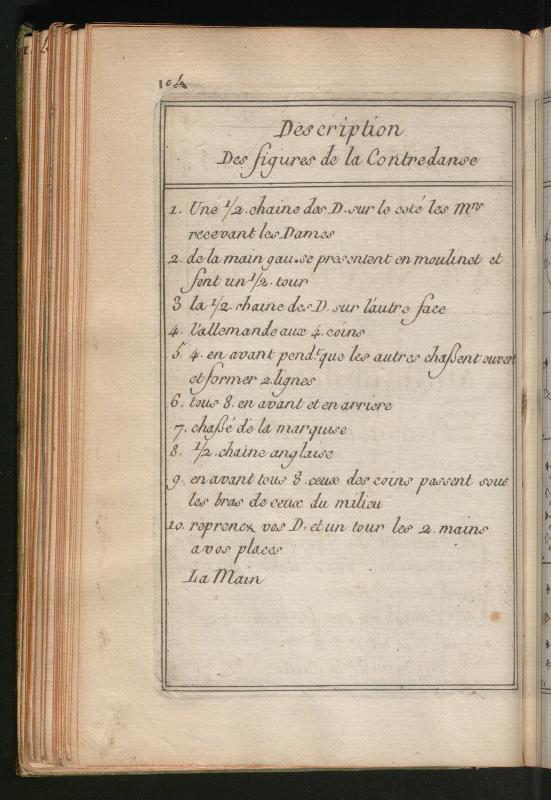 104
Description
Des figures de la Contredanse
1. Une 1/2. chaine des D. sur le coté les Mrs
recevant les Dames
2. de la main gau. se presentent en moulinet et
font un 1/2. tour
3 la 1/2. chaine des D. sur l'autre face
4. l'allemande aux 4. coins
5. 4. en avant pendt que les autres chaßent ouvert
et former 2. lignes
6. tous 8. en avant et en arriere
7. chaßé de la marquise
8. 1/2. chaine anglaise
9. en avant tous 8. ceux des coins passent sous
les bras de ceux du milieu
10. reprenez vos D. et un tour les 2. mains
a vos places
La Main